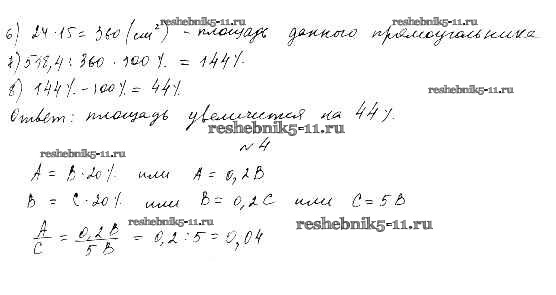 reshebnik5-11.ru
6) 24·15=360 (см²) - площадь данного прямоугольника
7) 518,4:360·100% = 144%
reshebnik5-11.ru
8) 144%-100%=44%
Ответ: площадь увеличится на 44%.
reshebnik5-11.ru
№4
reshebnik5-11.ru
A = B·20% или A = 0,2B
B = C·20% или B = 0,2C или C = 5B
reshebnik5-11.ru
A/C = 0,2B/5B = 0,2:5=0,04
reshebnik5-11.ru